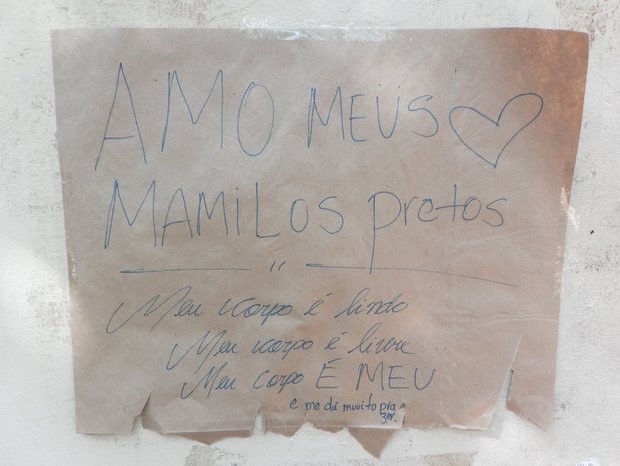 AMO MEUS
MAMILOS pretos
"
Meu corpo é lindo
Meu corpo é livre...
Meu corpo É MEU
e me dá muuito pra
zer.